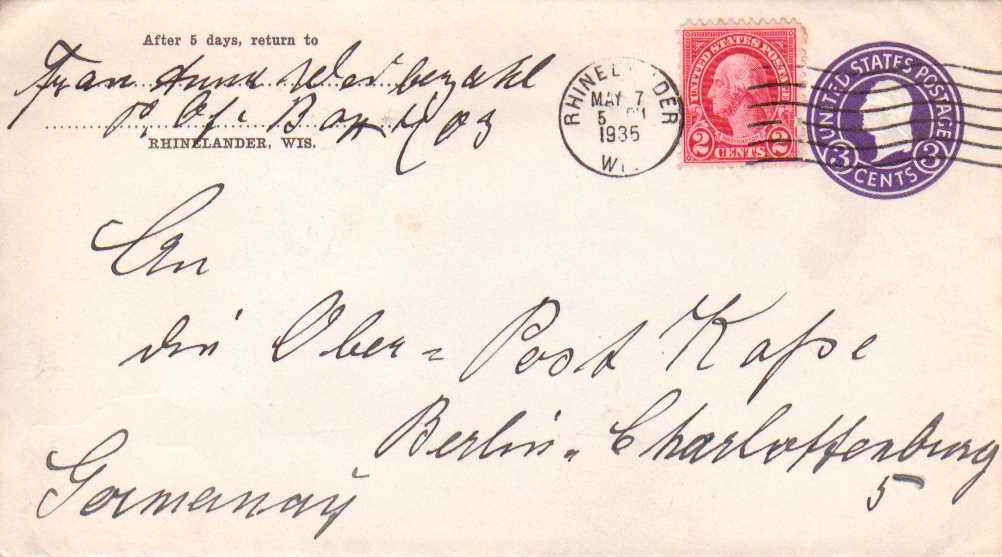 After 5 days, return to
Frau Anna
P. Of. Box 403
RHINELANDER, WIS.
RHINEL NDER
MAY 7
5 PM
1935
WI
UNITED STATES POSTAGE
2 CENTS 2
UNITED STATES POSTAGE
3 CENTS 3
An
die Ober=Post Kasse
Berlin=Charlottenburg
5
Germanay